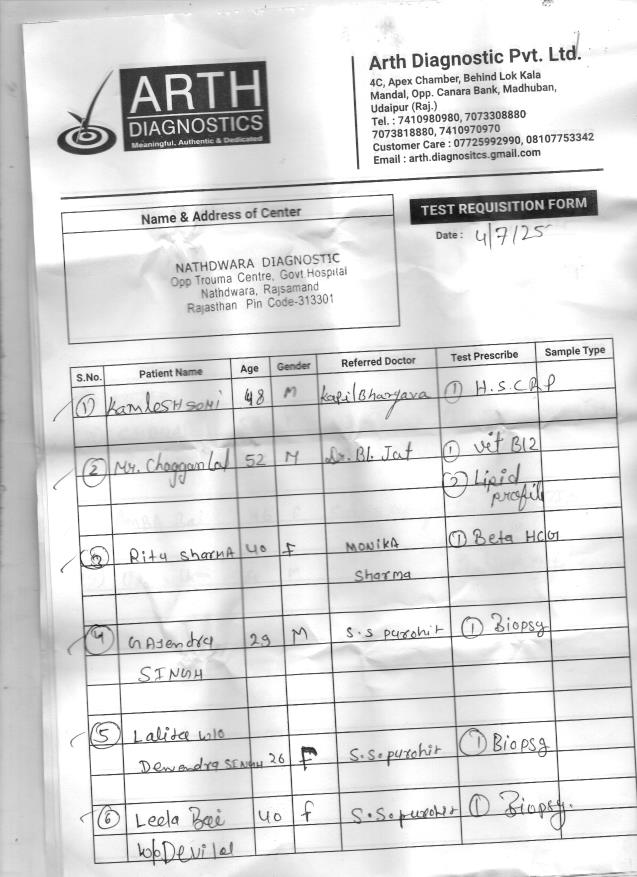 ARTH
DIAGNOSTICS
Meaningful, Authentic & Dedicated
Arth Diagnostic Pvt. Ltd.
4C, Apex Chamber, Behind Lok Kala
Mandal, Opp. Canara Bank, Madhuban,
Udaipur (Raj.)
Tel. : 7410980980, 7073308880
7073818880, 7410970970
Customer Care : 07725992990, 08107753342
Email : arth.diagnositcs.gmail.com
Name & Address of Center
NATHDWARA DIAGNOSTIC
Opp Trouma Centre, Govt.Hospital
Nathdwara, Rajsamand
Rajasthan Pin Code-313301
TEST REQUISITION FORM
Date : 4/7/25
S.No. Patient Name Age Gender Referred Doctor Test Prescribe Sample Type
1 Kamlesh SONI 48 M Kapil Bhargava 1 H.S.CRP
2 Mr. Chaggan Lal 52 M Dr. Bl. Jat 1 Vit B12
2 Lipid
profile
3 Ritu Sharma 40 F MONIKA 1 Beta HCG
Sharma
4 GAJendra 29 M S.S purohit 1 Biopsy
SINGH
5 Lalita w/o
Devendra SINGH 26 F S.S. purohit 1 Biopsy
6 Leela Bai 40 F S.S. purohit 1 Biopsy.
w/o Devi lal